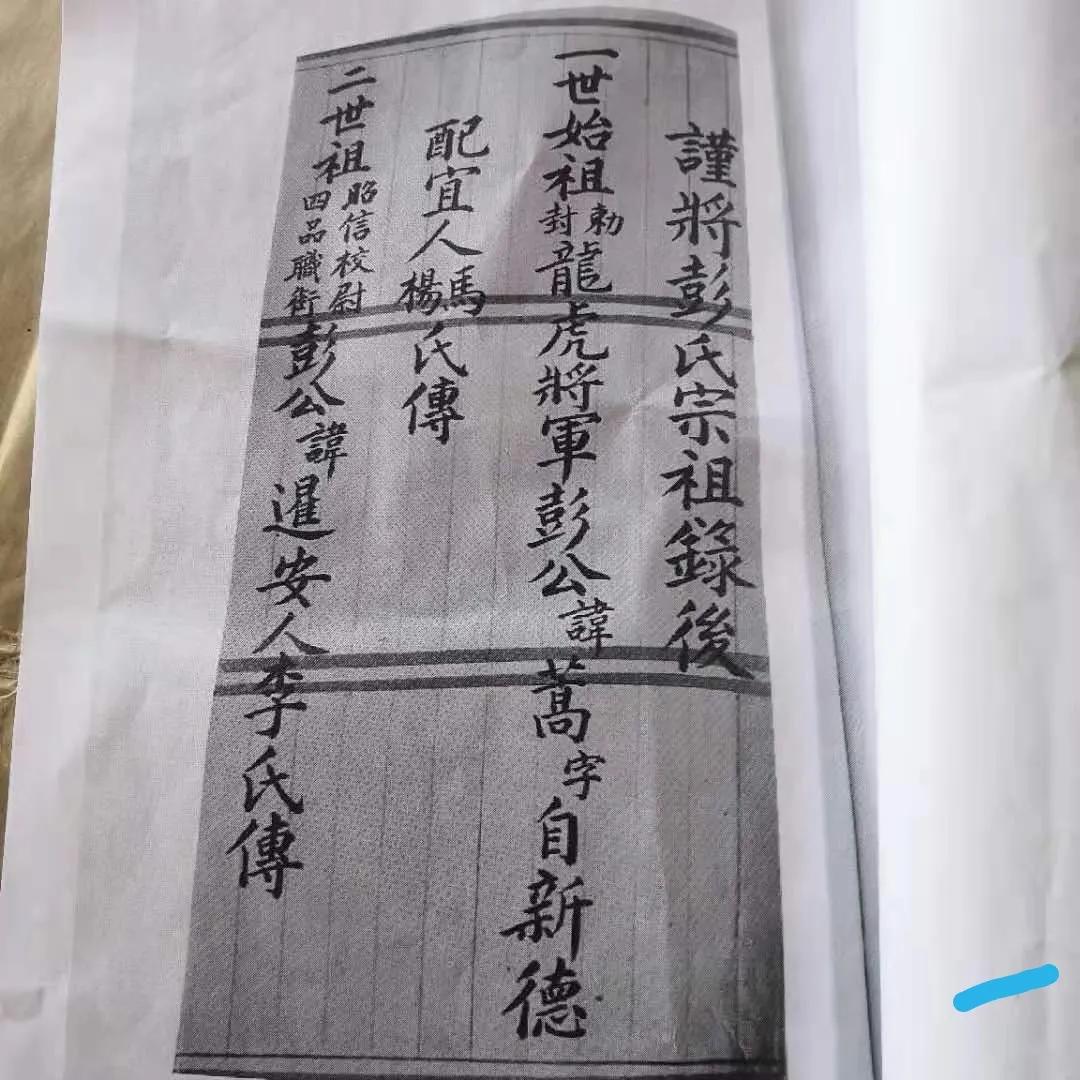 謹將彭氏宗祖錄後
一世始祖勅封龍虎將軍彭公諱蒿字自新德
配宜人馬楊氏傳
二世祖昭信校尉四品職銜彭公諱暹安人李氏傳